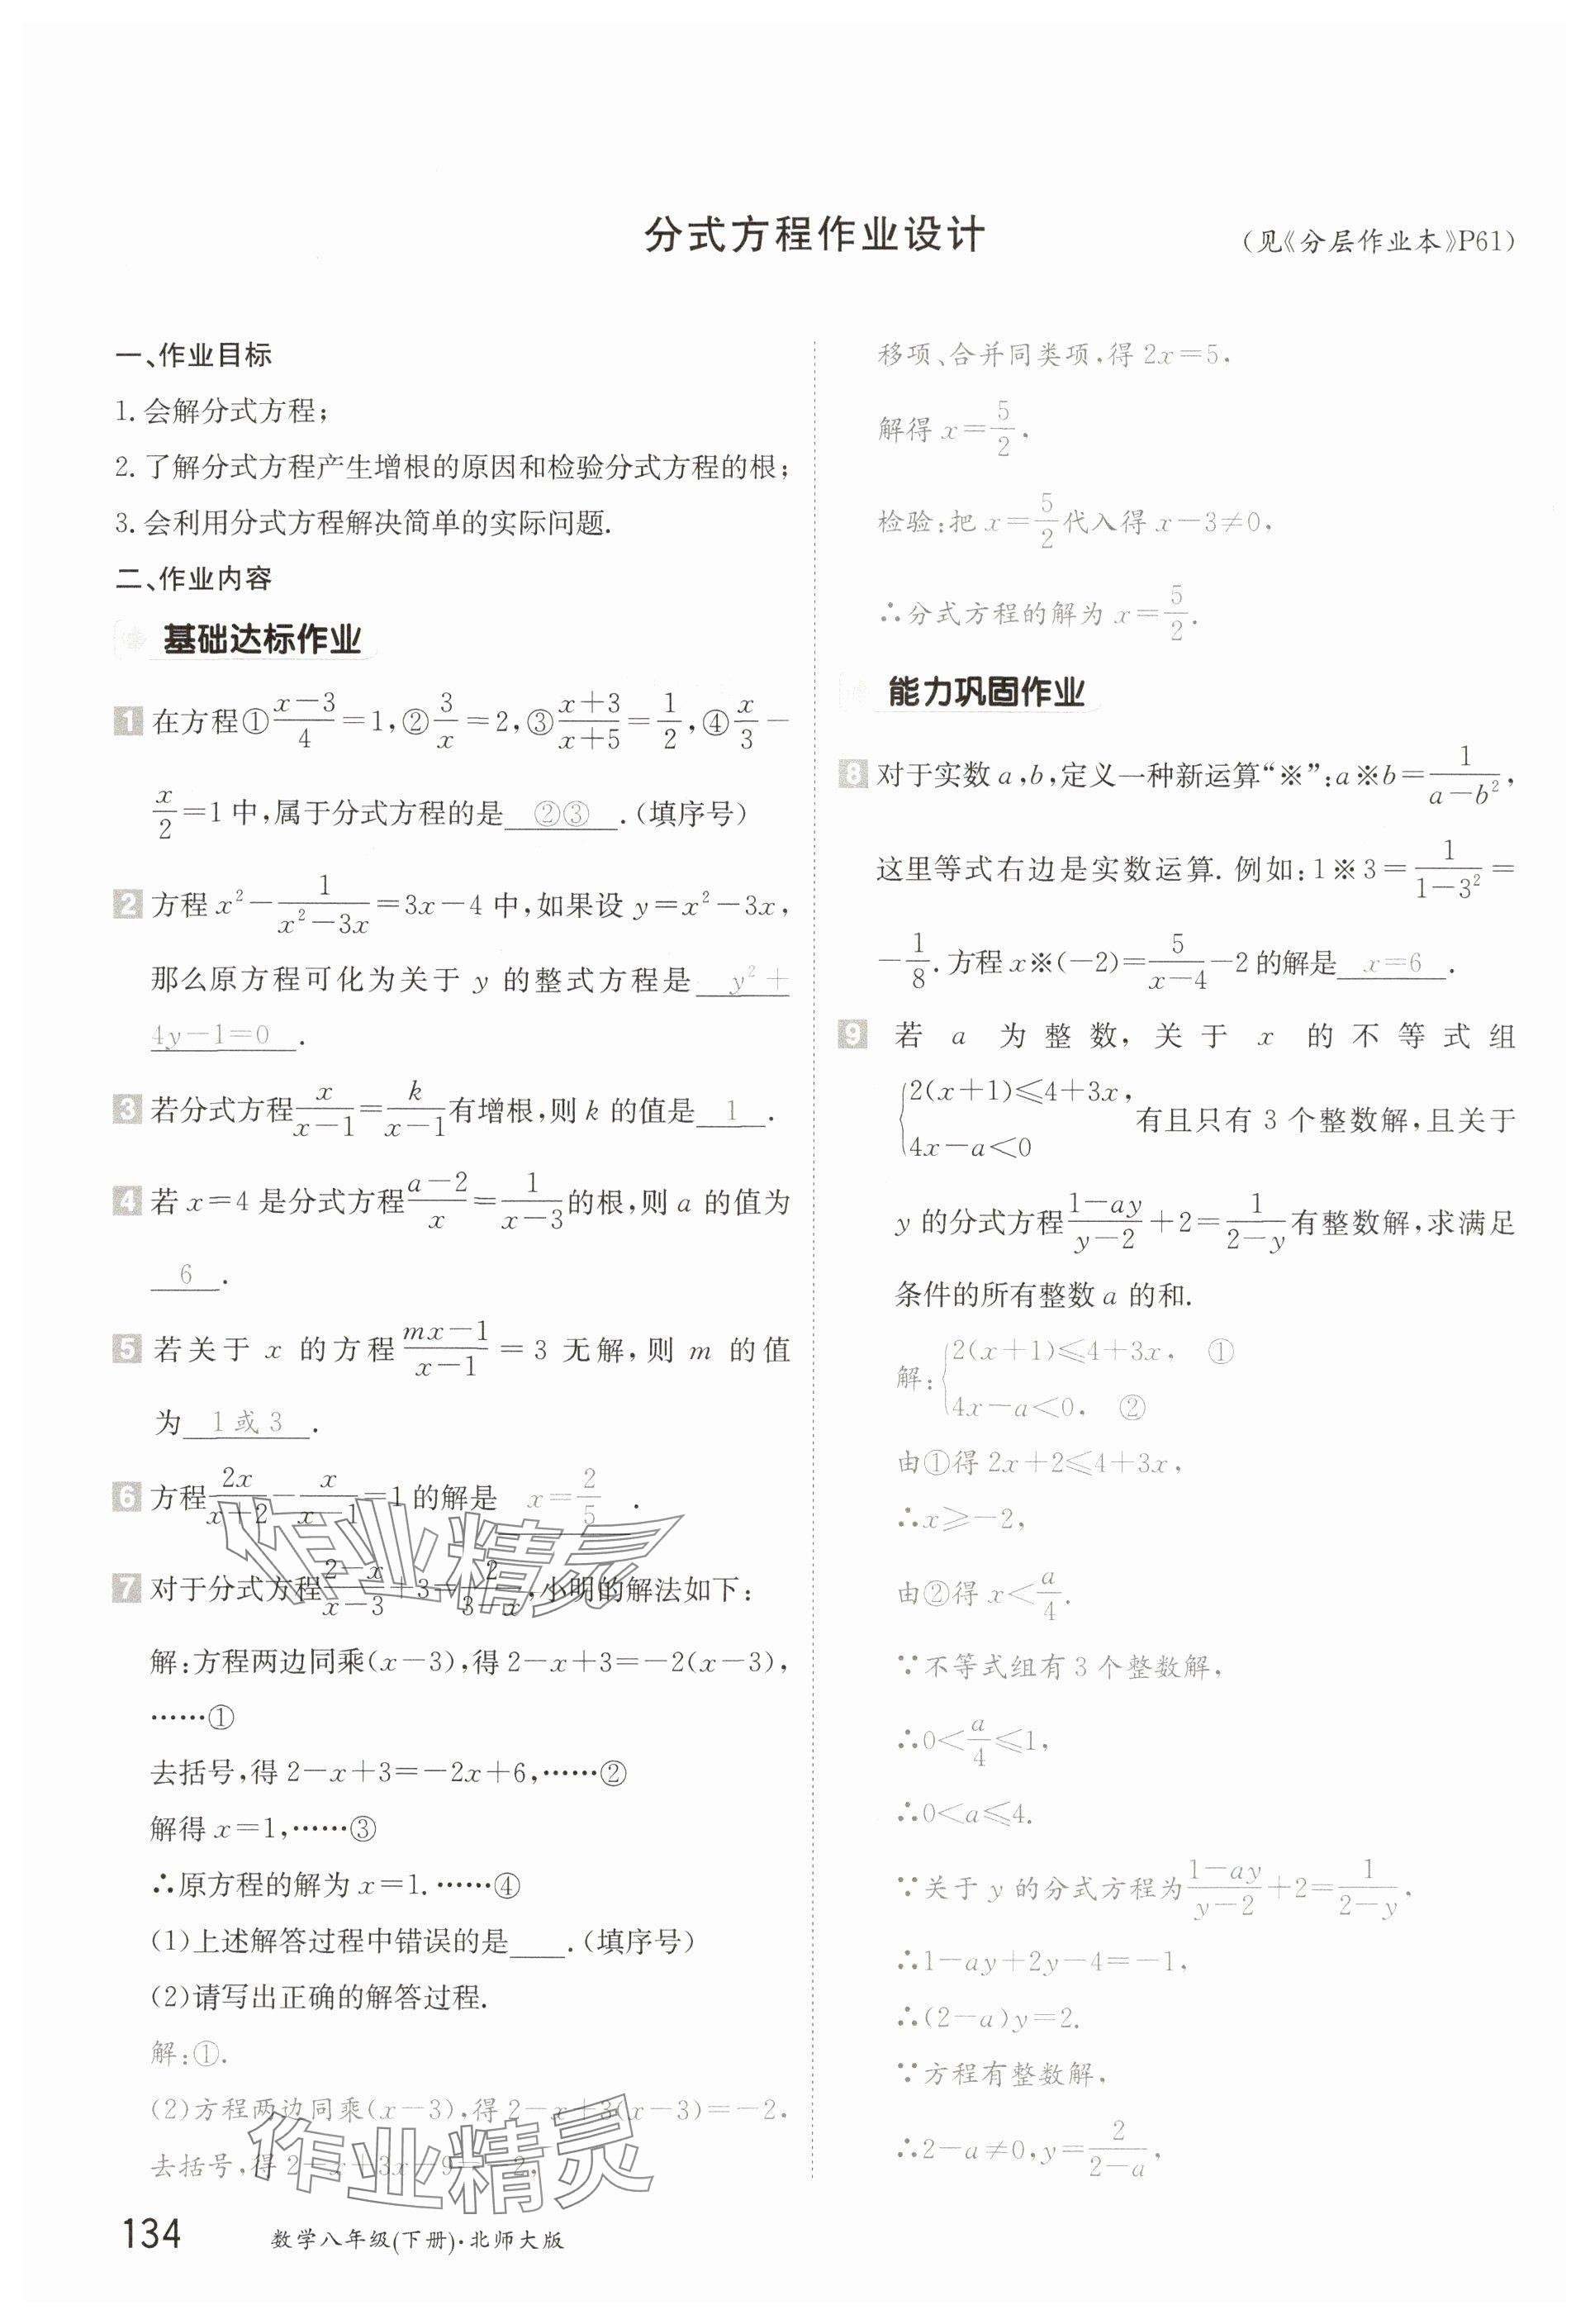 分式方程作业设计
(见《分层作业本》P61)
一、作业目标
1. 会解分式方程;
2. 了解分式方程产生增根的原因和检验分式方程的根;
3. 会利用分式方程解决简单的实际问题.
二、作业内容
基础达标作业
1 在方程①\frac{x-3}{4}=1,②\frac{3}{x}=2,③\frac{x+3}{x+5}=\frac{1}{2},④\frac{x}{3}-
\frac{x}{2}=1中,属于分式方程的是 ②③ .(填序号)
2 方程x²-\frac{1}{x²-3x}=3x-4中,如果设y=x²-3x,
那么原方程可化为关于 y 的整式方程是 y²+
4y-1=0 .
3 若分式方程\frac{x}{x-1}=\frac{k}{x-1}有增根,则k的值是 1 .
4 若x=4是分式方程\frac{a-2}{x}=\frac{1}{x-3}的根,则a的值为
6 .
5 若关于 x 的方程\frac{mx-1}{x-1}=3 无解,则 m 的值
为 1或3 .
6 方程\frac{2x}{x+2}-\frac{x}{x-1}=1的解是 x=\frac{2}{5} .
7 对于分式方程\frac{2-x}{x-3}+3=\frac{2}{3-x},小明的解法如下:
解:方程两边同乘(x-3),得2-x+3=-2(x-3),
……①
去括号,得2-x+3=-2x+6,……②
解得x=1,……③
∴原方程的解为x=1.……④
(1)上述解答过程中错误的是____.(填序号)
(2)请写出正确的解答过程.
解:①.
(2)方程两边同乘(x-3),得2-x+3(x-3)=-2.
去括号,得2-x+3x-9=-2,
移项、合并同类项,得2x=5,
解得x=\frac{5}{2},
检验:把x=\frac{5}{2}代入得x-3≠0,
∴分式方程的解为x=\frac{5}{2}.
能力巩固作业
8 对于实数a,b,定义一种新运算“※”:a※b=\frac{1}{a-b²},
这里等式右边是实数运算. 例如:1※3=\frac{1}{1-3²}=
-\frac{1}{8}.方程x※(-2)=\frac{5}{x-4}-2的解是 x=6 .
9 若 a 为整数,关于 x 的不等式组
{2(x+1)≤4+3x,
4x-a<0
有且只有3个整数解,且关于
y的分式方程\frac{1-ay}{y-2}+2=\frac{1}{2-y}有整数解,求满足
条件的所有整数a的和.
解:{2(x+1)≤4+3x, ①
4x-a<0, ②
由①得2x+2≤4+3x,
∴x≥-2,
由②得x<\frac{a}{4}.
∵不等式组有3个整数解,
∴0<\frac{a}{4}≤1,
∴0<a≤4.
∵关于y的分式方程为\frac{1-ay}{y-2}+2=\frac{1}{2-y},
∴1-ay+2y-4=-1,
∴(2-a)y=2.
∵方程有整数解,
∴2-a≠0,y=\frac{2}{2-a},
134
数学八年级(下册)·北师大版
作业精灵
作业精灵